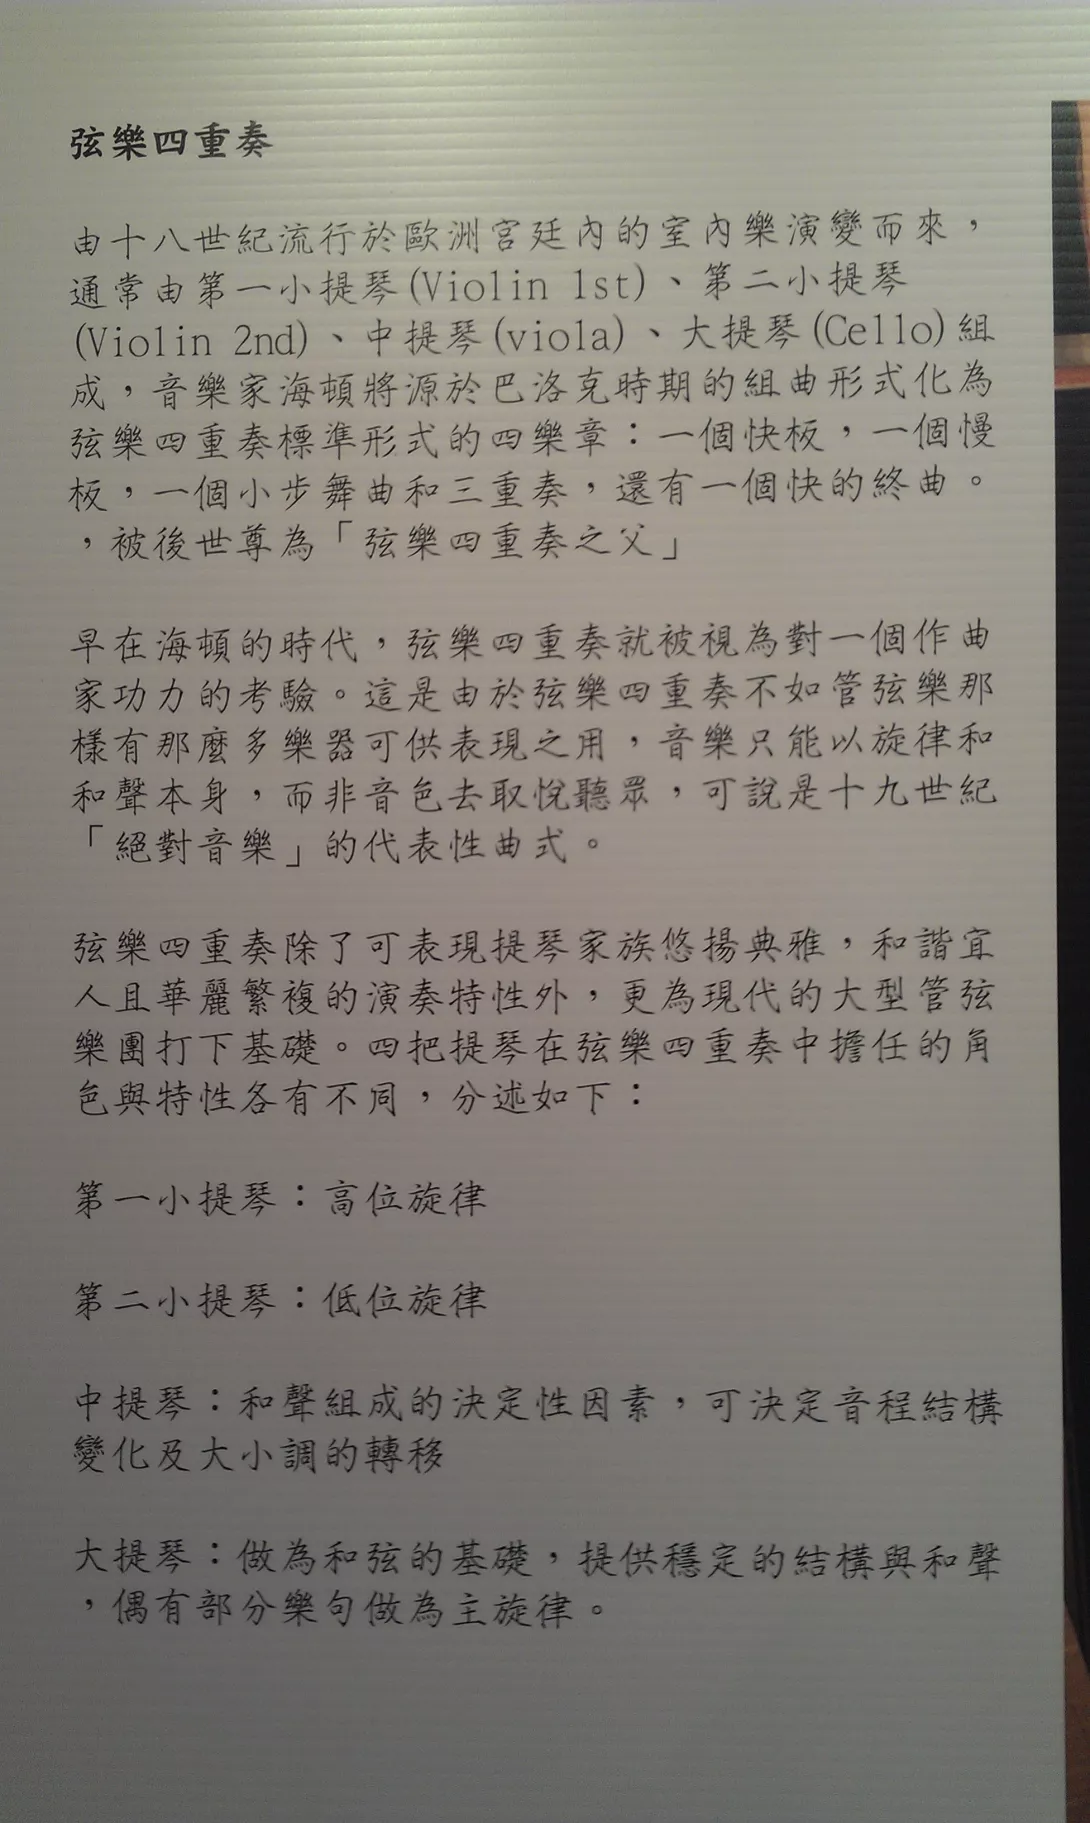 弦樂四重奏
由十八世紀流行於歐洲宮廷內的室內樂演變而來，
通常由第一小提琴(Violin 1st)、第二小提琴
(Violin 2nd)、中提琴(viola)、大提琴(Cello)組
成，音樂家海頓將源於巴洛克時期的組曲形式化為
弦樂四重奏標準形式的四樂章：一個快板，一個慢
板，一個小步舞曲和三重奏，還有一個快的終曲。
，被後世尊為「弦樂四重奏之父」
早在海頓的時代，弦樂四重奏就被視為對一個作曲
家功力的考驗。這是由於弦樂四重奏不如管弦樂那
樣有那麼多樂器可供表現之用，音樂只能以旋律和
和聲本身，而非音色去取悅聽眾，可說是十九世紀
「絕對音樂」的代表性曲式。
弦樂四重奏除了可表現提琴家族悠揚典雅，和諧宜
人且華麗繁複的演奏特性外，更為現代的大型管弦
樂團打下基礎。四把提琴在弦樂四重奏中擔任的角
色與特性各有不同，分述如下：
第一小提琴：高位旋律
第二小提琴：低位旋律
中提琴：和聲組成的決定性因素，可決定音程結構
變化及大小調的轉移
大提琴：做為和弦的基礎，提供穩定的結構與和聲
，偶有部分樂句做為主旋律。